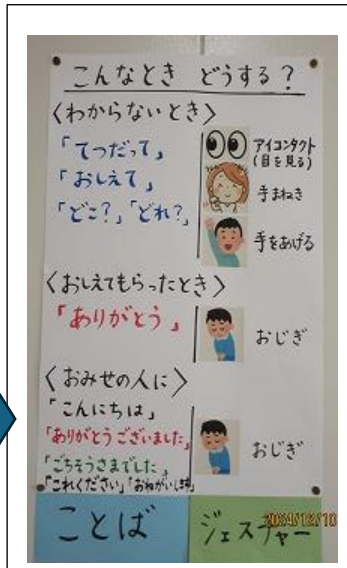 こんなとき どうする?
〈わからないとき〉
「てつだって」
「おしえて」
「どこ?」「どれ?」
アイコンタクト
(目を見る)
手まねき
手をあげる
〈おしえてもらったとき〉
「ありがとう」
おじぎ
〈おみせの人に〉
「こんにちは」
「ありがとうございました」
「ごちそうさまでした」
「これください」「おねがいします」
おじぎ
ことば
ジェスチャー
2024/12/10